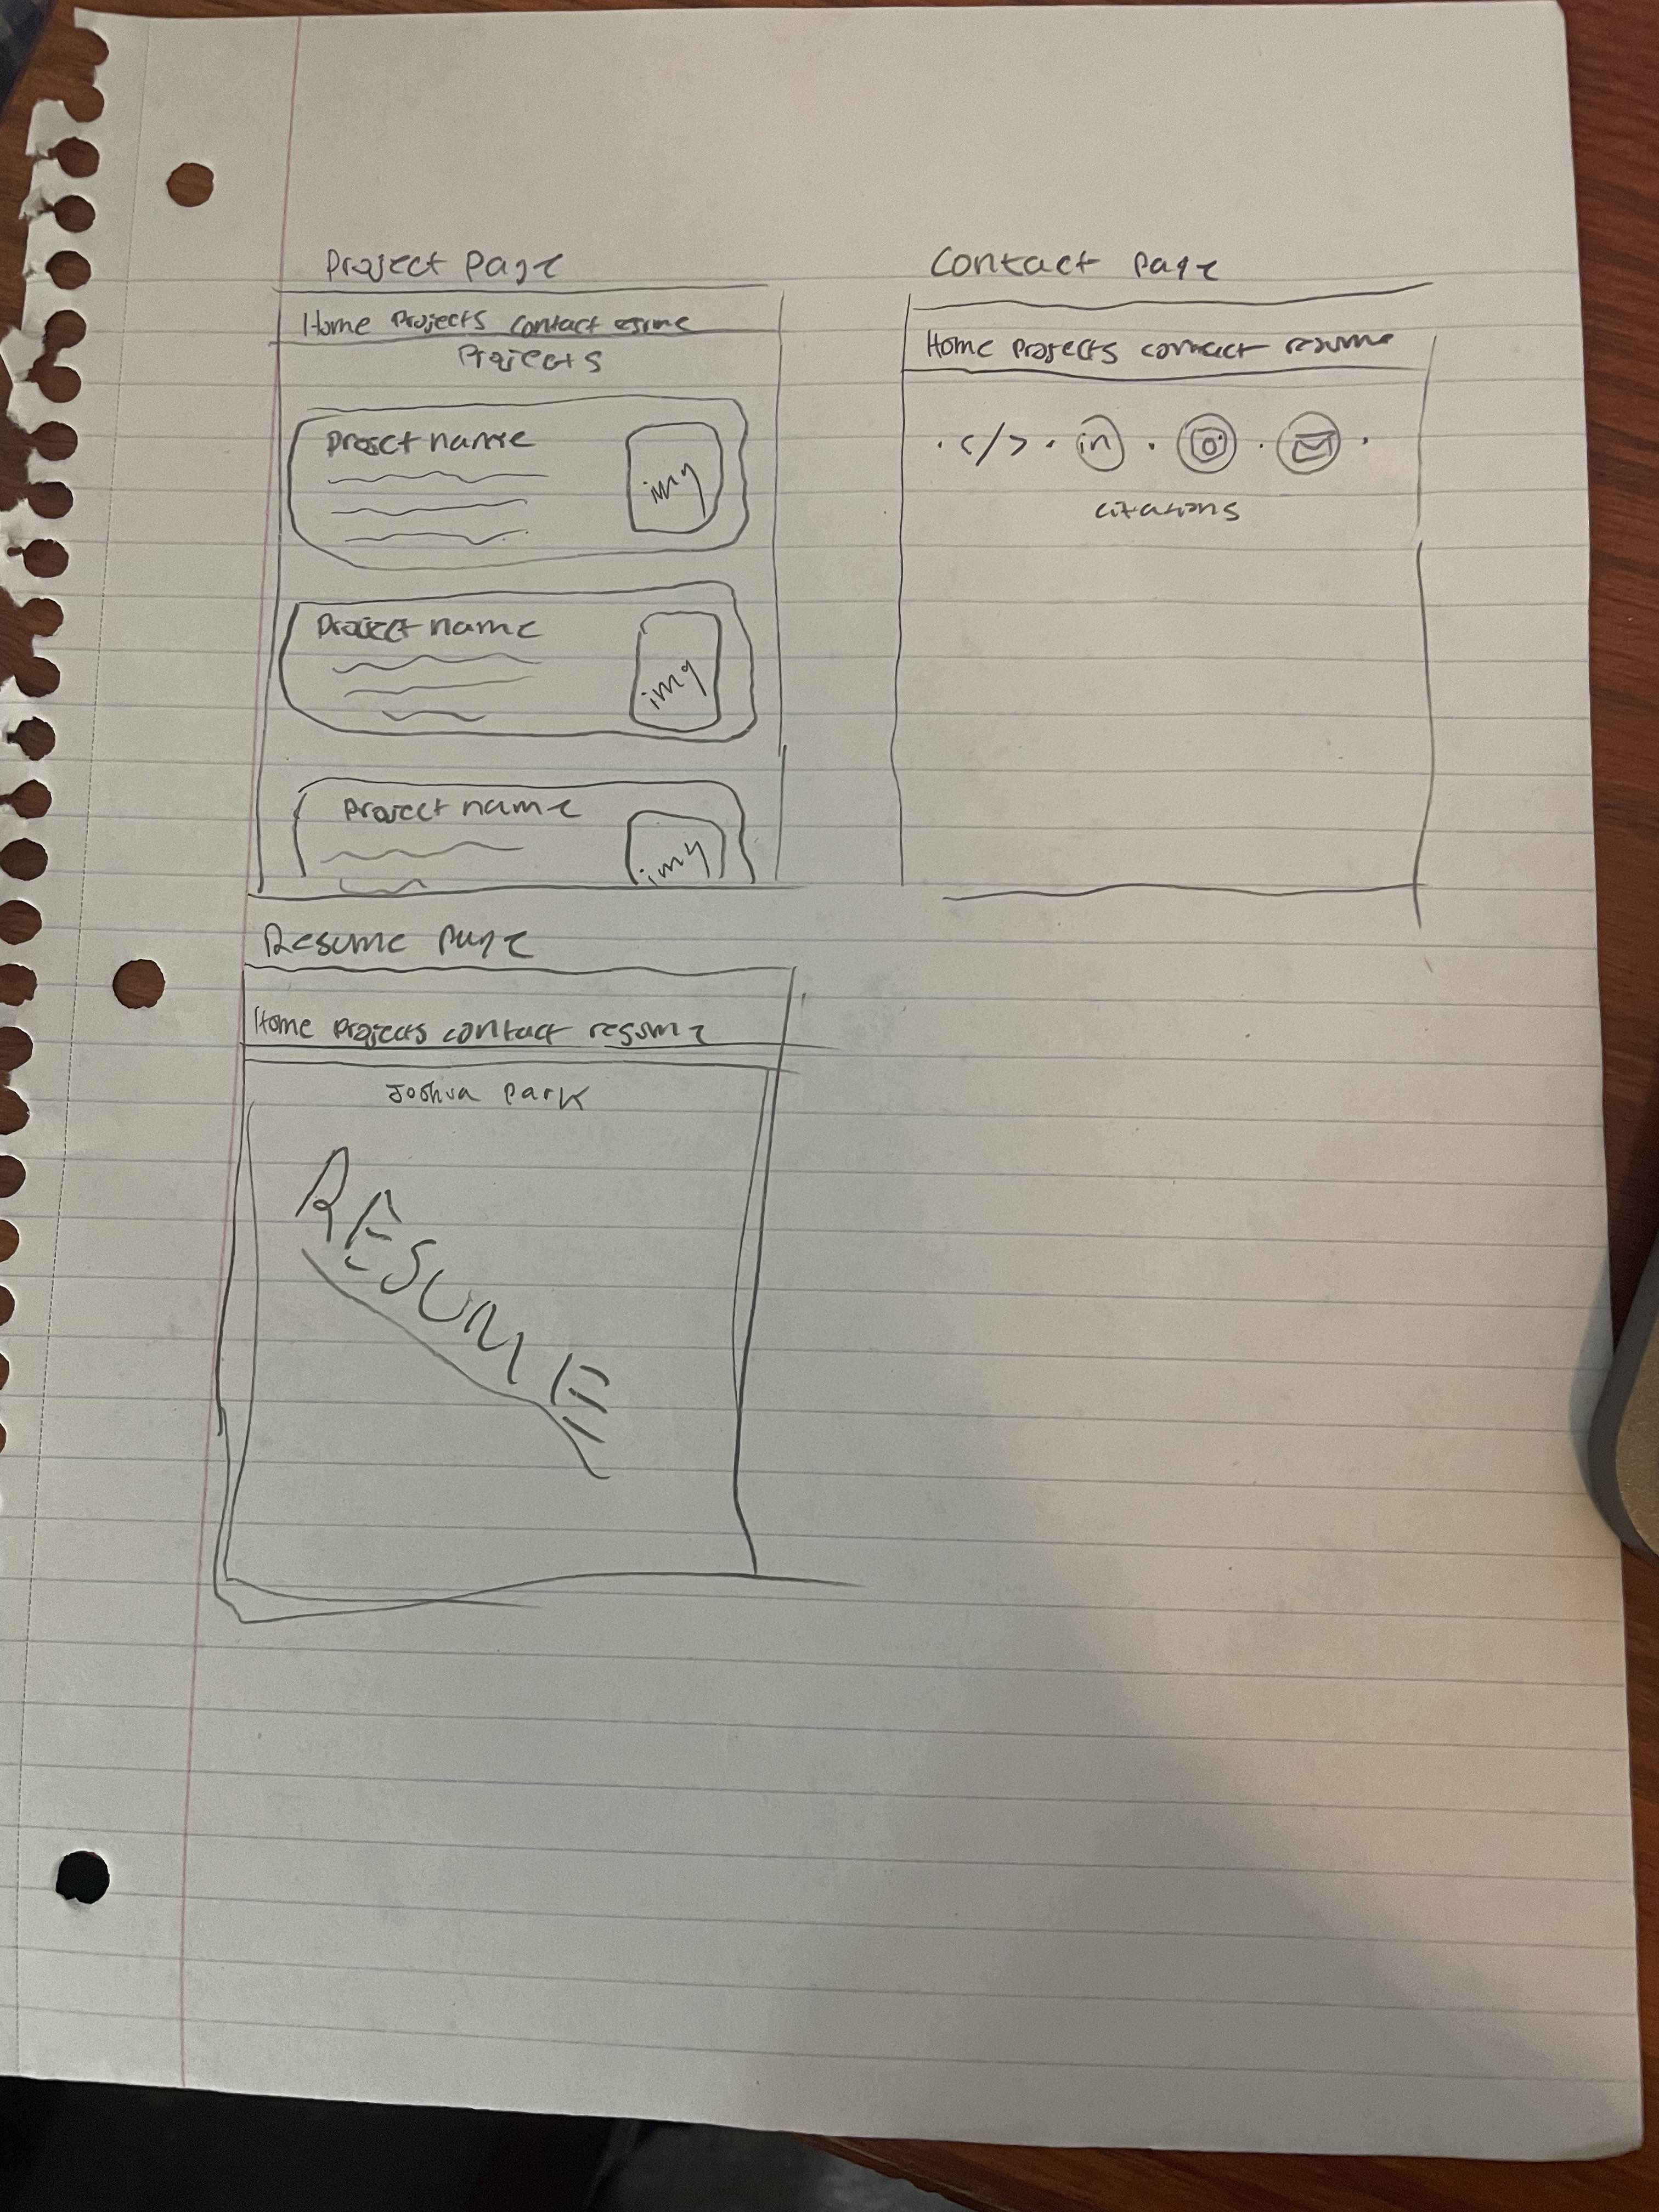 Project Page
Home Projects contact
Projects
project name
img
project name
img
project name
img
Contact Page
Home Projects contact resume
</>
in
citations
Resume Page
Home Projects contact resume
Joshua Park
RESUME